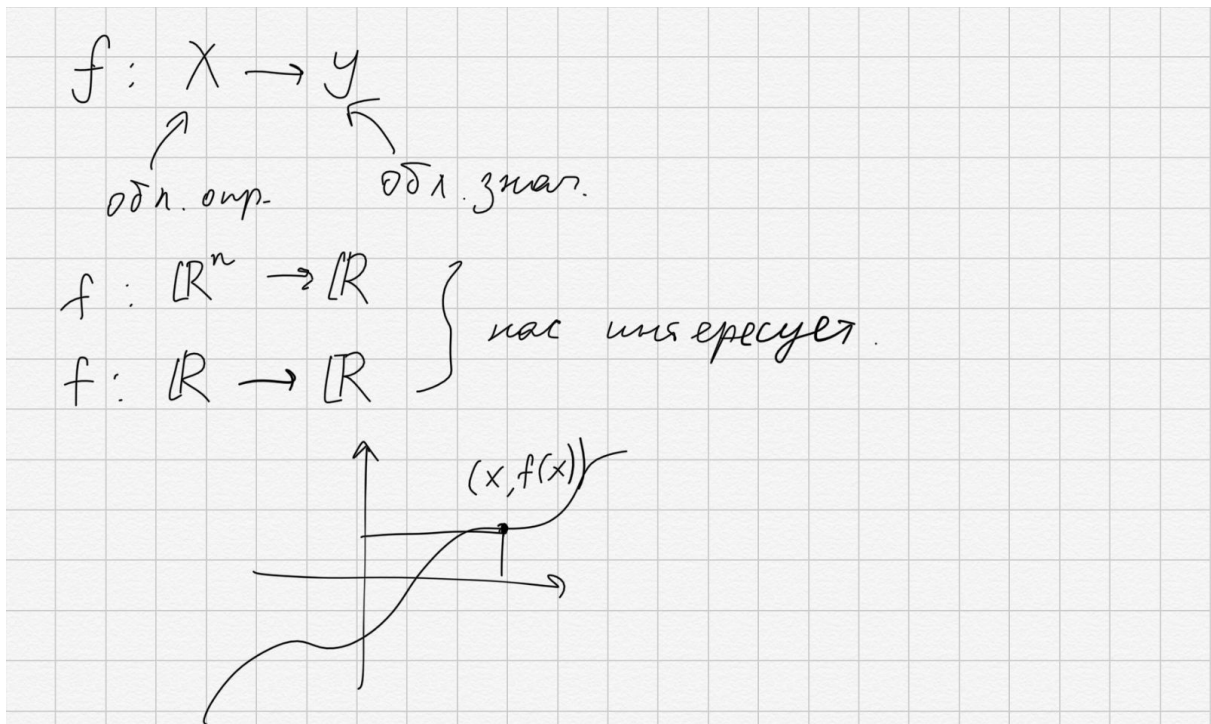 f: X → y
обл. опр.
обл. знач.
f: ℝⁿ → ℝ
f: ℝ → ℝ
нас интересует.
(x, f(x))